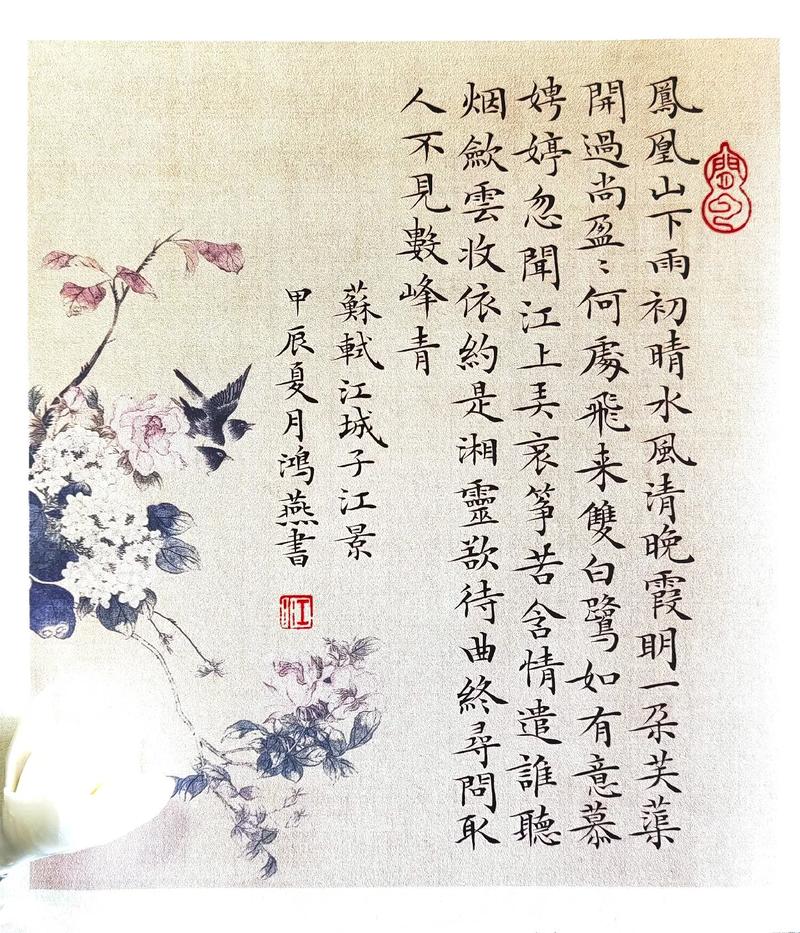 鳳凰山下雨初晴水風清晚霞明一朵芙蕖
開過尚盈〻何處飛来雙白鷺如有意慕
娉婷忽聞江上弄哀筝苦含情遣誰聽
烟歛雲收依約是湘靈欲待曲終尋問取
人不見數峰青
蘇軾江城子江景
甲辰夏月鴻燕書